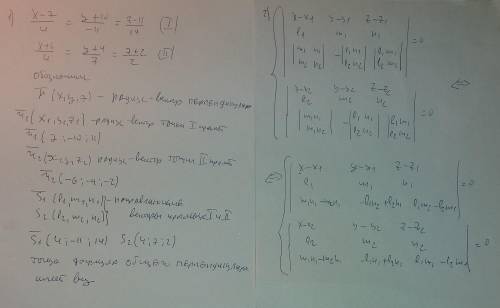 1) x-7/4 = y+10/-11 = z-11/14 (I)
x+6/4 = y+4/7 = z+2/2 (II)
обозначим
r̄ (x, y, z) - радиус-вектор перпендикуляра
r̄1 (x1, y1, z1) - радиус-вектор точки I прямой
r̄1 (7; -10; 11)
r̄2 (x2, y2, z2) радиус-вектор точки II прямой
r̄2 (-6; -4; -2)
S̄1 (l1, m1, n1) - направляющие
S2 (l2, m2, n2) векторы прямых I и II
S̄1 (4; -11; 14) S2 (4; 7; 2)
тогда формула общего перпендикуляра
имеет вид
2)
x-x1 y-y1 z-z1
l1 m1 n1
|m1 n1 / m2 n2| -|l1 n1 / l2 n2| |l1 m1 / l2 m2| =0
x-x2 y-y2 z-z2
l2 m2 n2
|m1 n1 / m2 n2| -|l1 n1 / l2 n2| |l1 m1 / l2 m2| =0
⇔
⇔
x-x1 y-y1 z-z1
l1 m1 n1 =0
x-x2 y-y2 z-z2
l2 m2 n2 =0